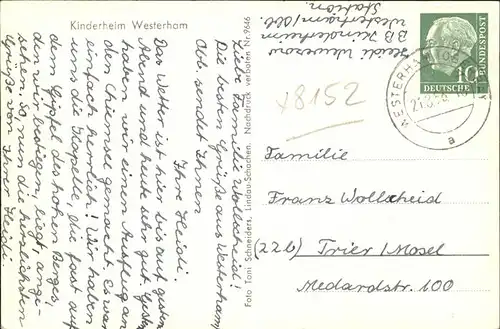 Kinderheim Westerham
Liebe Familie Wollscheid!
Die besten Grüße aus Westerham,
Obb. sendet Ihnen
Ihre Heidi.
Das Wetter ist hier bis auf gestern
Abend und heute sehr gut. Gestern
haben wir einen Ausflug an
den Chiemsee gemacht. Es war
einfach herrlich! Wir haben
uns die Kapelle, die fast auf
dem Gipfel des hohen Berges,
den wir bestiegen, liegt, ange-
sehen. So, nun die herzlichsten
Grüße von Ihrer Heidi.
Foto Toni Schneiders, Lindau-Schachen. Nachdruck verboten Nr. 9646
Heidi
BB Kinderheim
Westerham/Obb.
Station
DEUTSCHE
BUNDESPOST
10
WESTERHAM
a
x8152
Familie
Franz Wollscheid
(22b) Trier / Mosel
Medardstr. 100